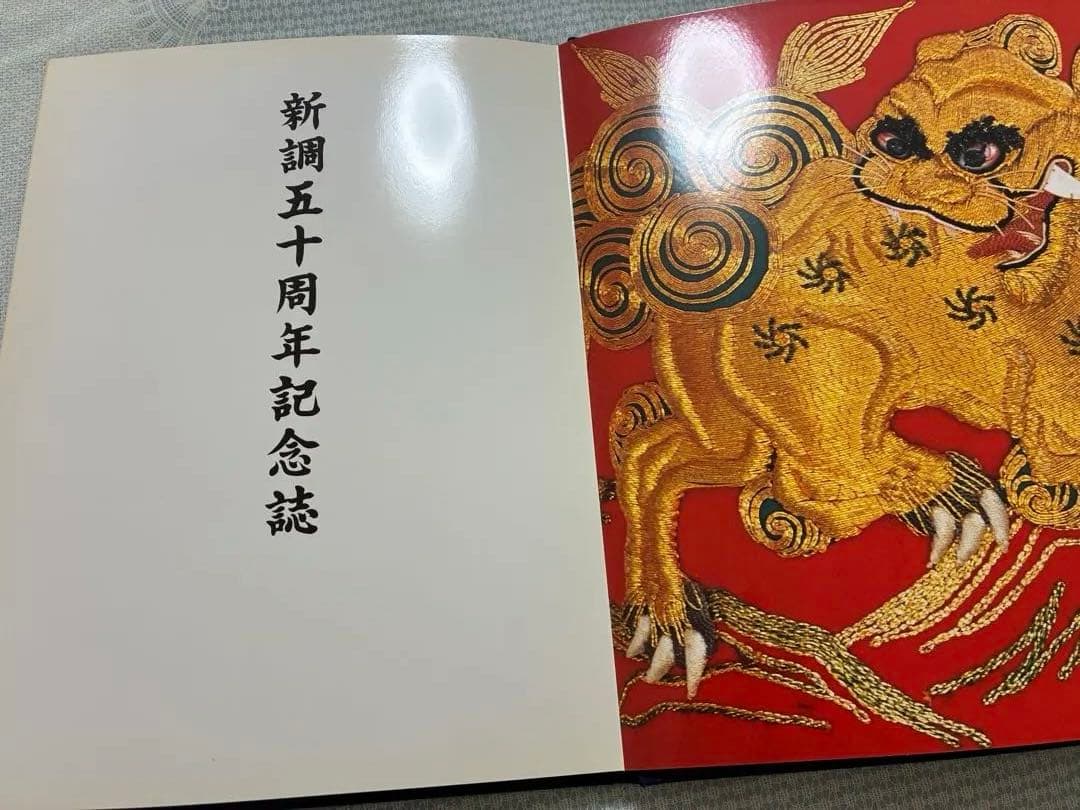 新調五十周年記念誌